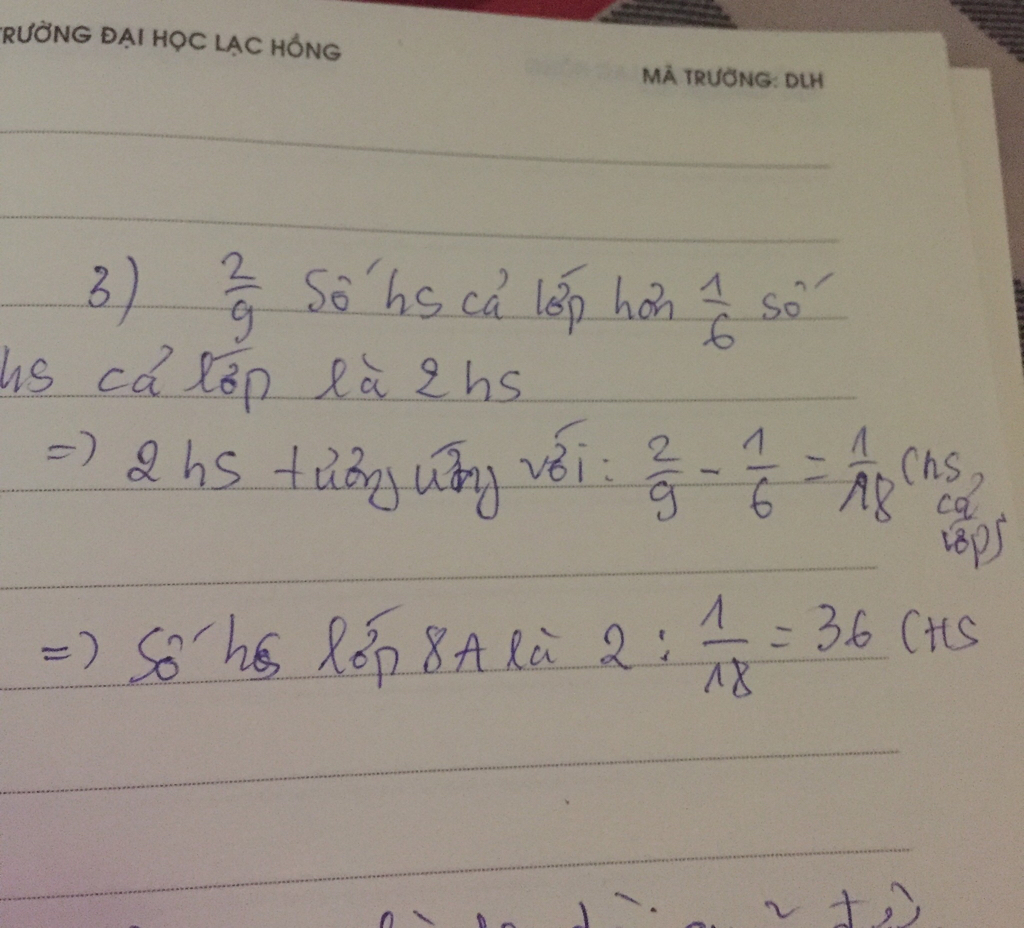 TRƯỜNG ĐẠI HỌC LẠC HỒNG
MÃ TRƯỜNG: DLH
3) 2/9 Số hs cả lớp hơn 1/6 số
hs cả lớp là 2hs
=) 2 hs tương ứng với: 2/9 - 1/6 = 1/18 (hs
cả
lớp)
=) Số hs lớp 8A là 2 : 1/18 = 36 (HS